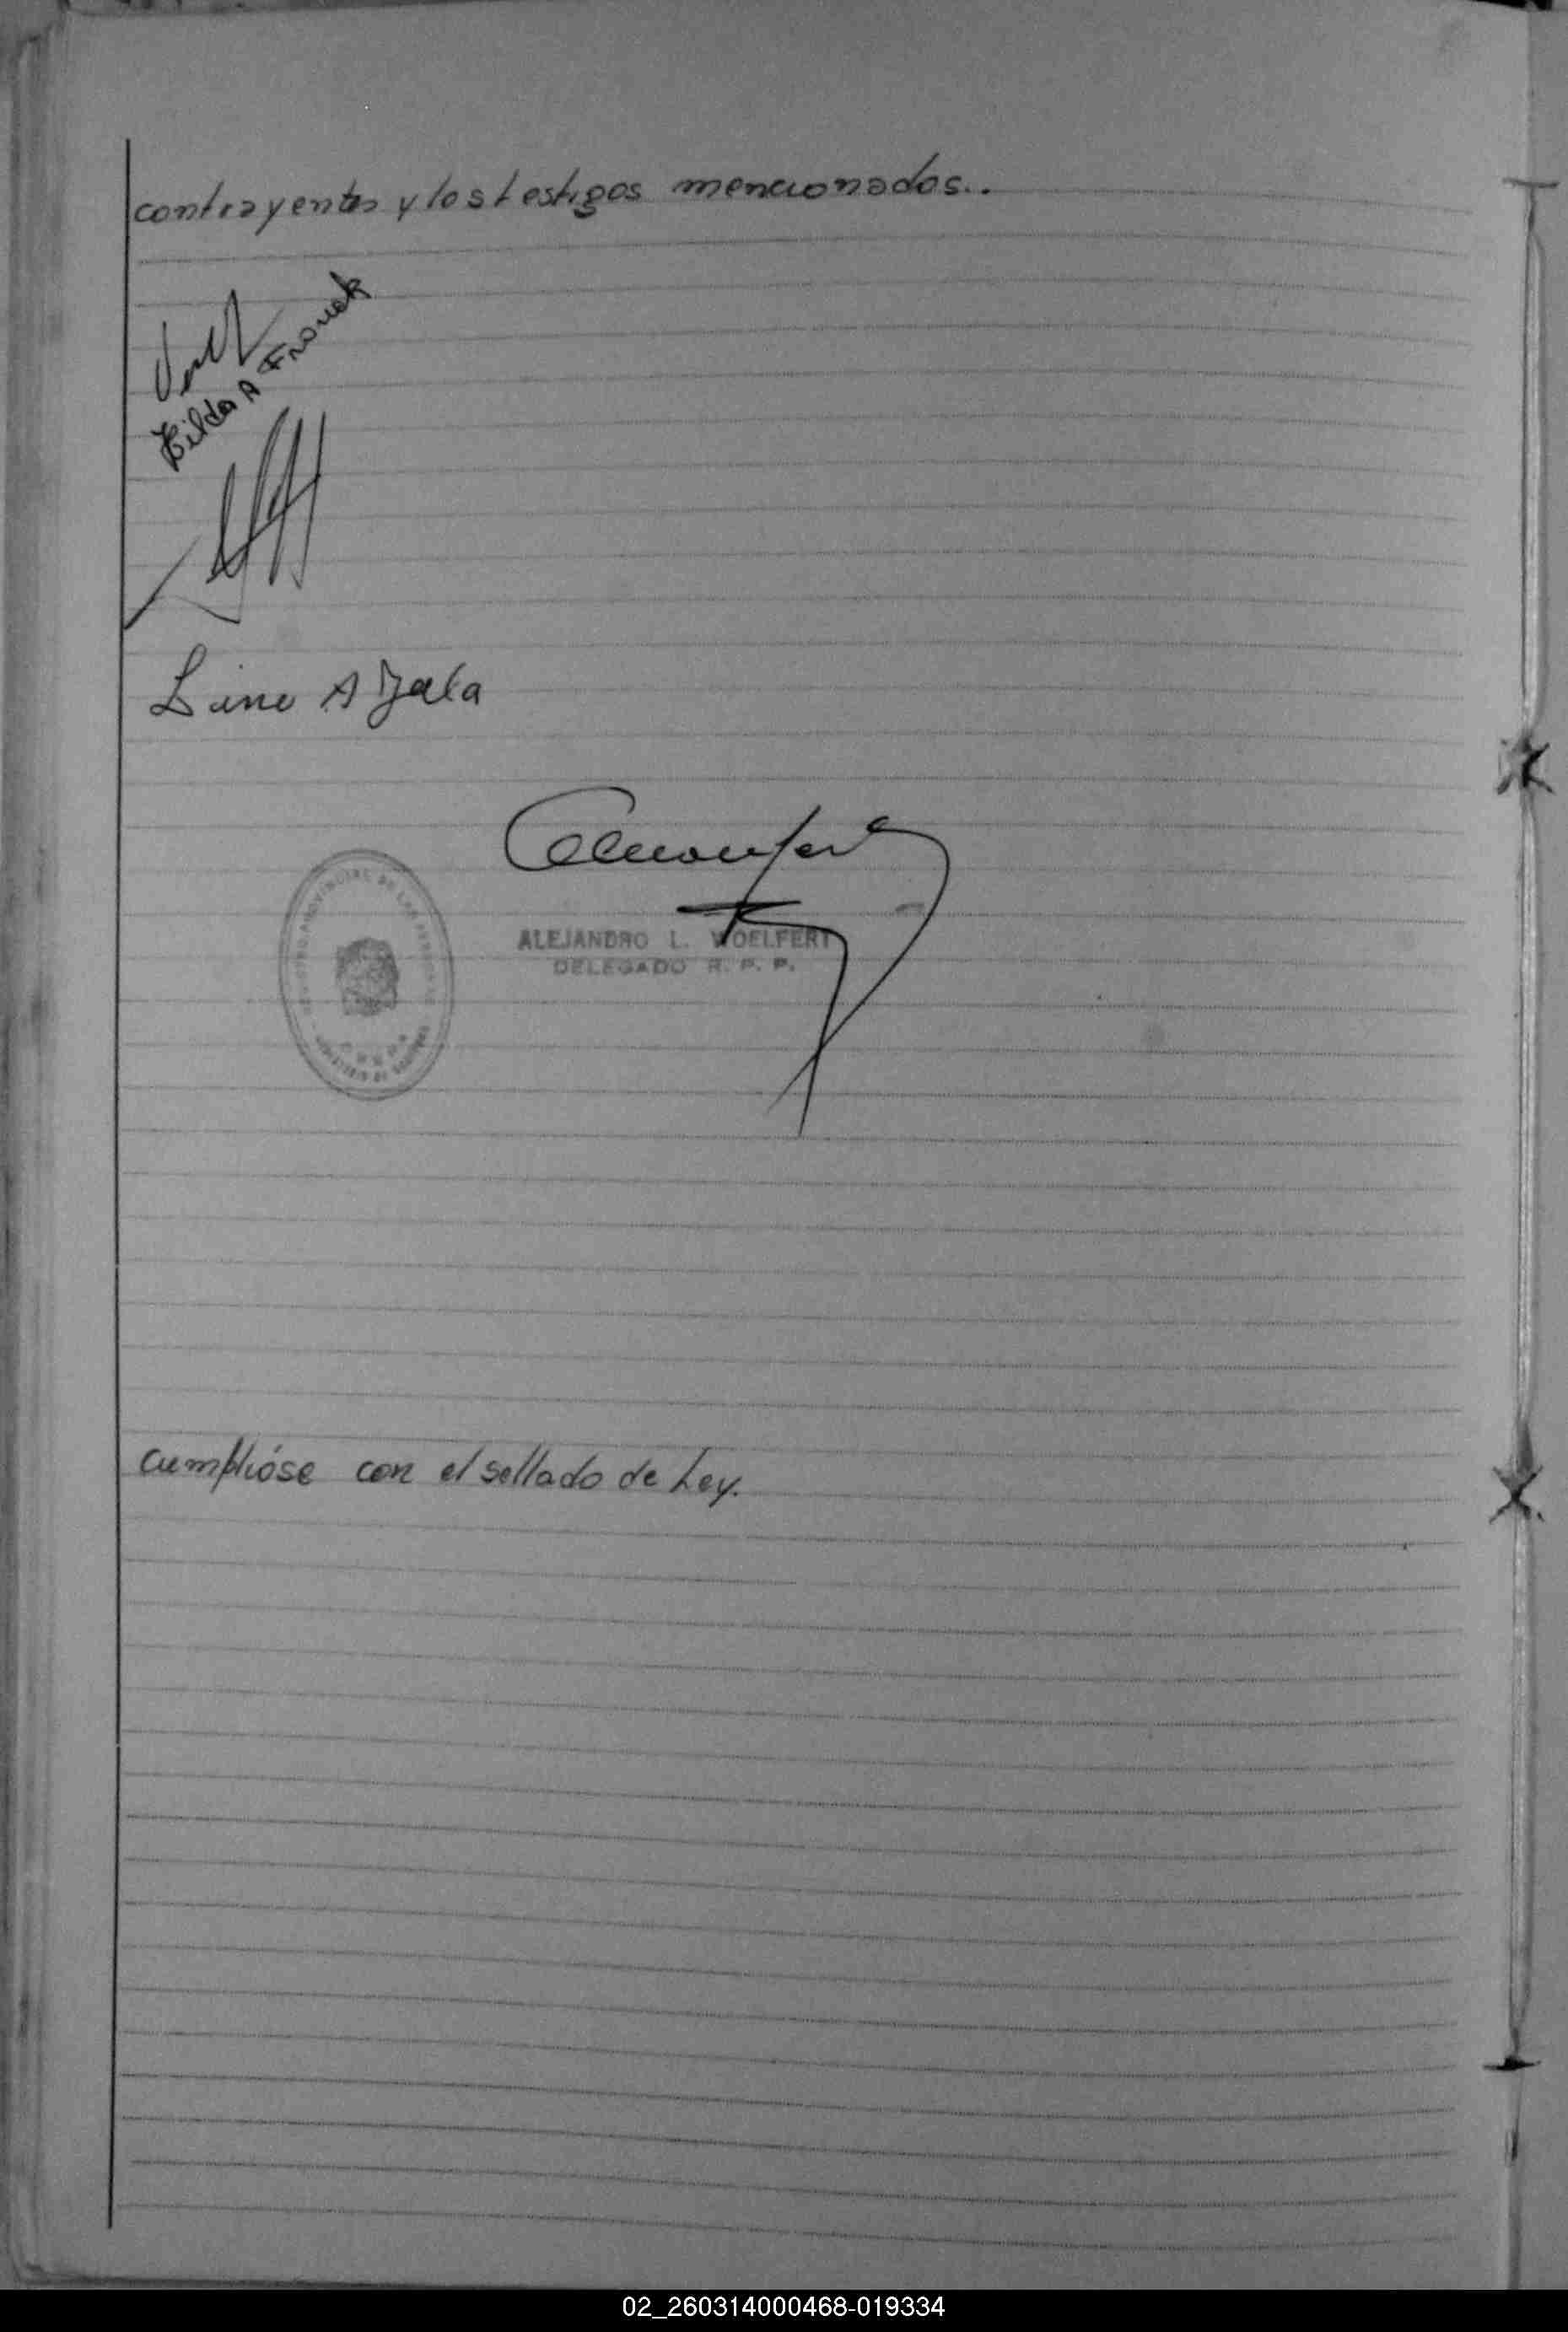 contrayentes y los testigos mencionados..
Hilda A Franck
Lino AYala
ALEJANDRO L. WOELFERT
DELEGADO R. P. P.
PROVINCIAL DE LAS PERSONAS
cumplióse con el sellado de Ley.
02_260314000468-019334